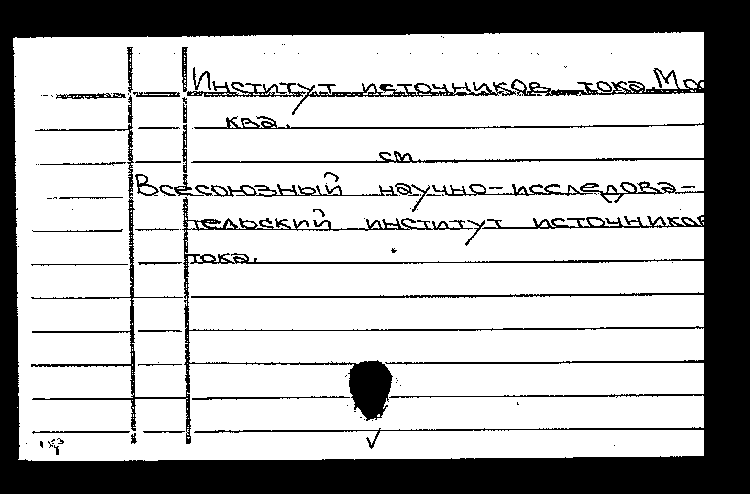 Институт источников тока. Мос
ква.
см
Всесоюзный научно-исследова-
тельский институт источников
тока.